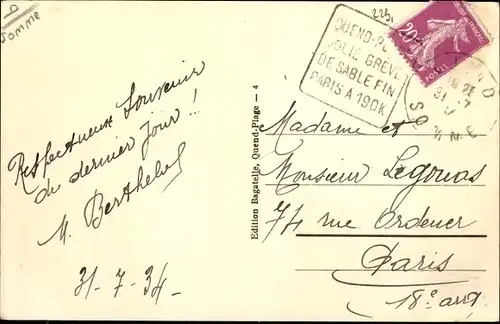 Somme
223
QUEND-PL
JOLIE GRÈVE
DE SABLE FIN
PARIS A 190K
20
POSTES
QUEND
21-7
SOMME
Respectueux Souvenir
du dernier jour !!
M. Berthelot
31-7-34-
Edition Bagatelle, Quend-Plage - 4
Madame et
Monsieur Legouas
74 rue Ordener
Paris
18e arrt